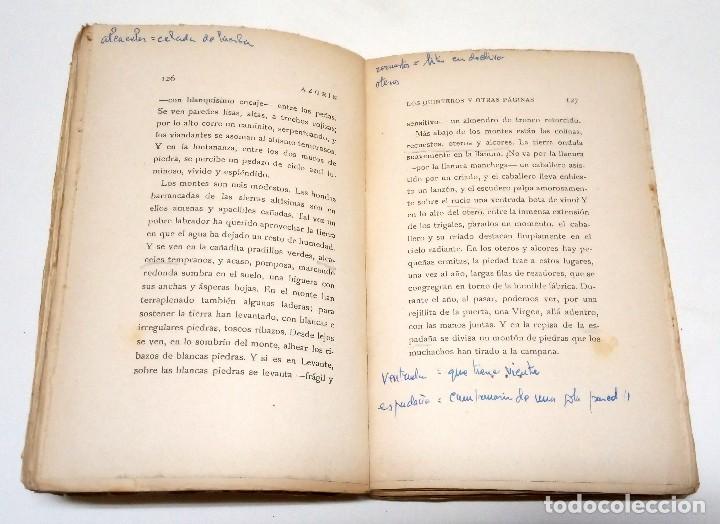 alcaceles = cebada de
126
AZORIN
—con blanquísimo encaje— entre las peñas.
Se ven paredes lisas, altas, a trechos rojizas;
por lo alto corre un caminito, serpenteando, y
los viandantes se asoman al abismo temerosos.
Y en la lontananza, entre dos muros de
piedra, se percibe un pedazo de cielo azul lu-
minoso, vívido y espléndido.
Los montes son más modestos. Las hondas
barrancadas de las sierras altísimas son en
ellos amenas y apacibles cañadas. Tal vez un
pobre labrador ha querido aprovechar la tierra
en que el agua ha dejado un resto de humedad.
Y se ven en la cañadita pradillos verdes, alca-
celes tempranos, y acaso, pomposa, marcando
redonda sombra en el suelo, una higuera con
sus anchas y ásperas hojas. En el monte han
terraplenado también algunas laderas; para
sostener la tierra han levantado, con blancas e
irregulares piedras, toscos ribazos. Desde lejos
se ven, en lo sombrío del monte, albear los ri-
bazos de blancas piedras. Y si es en Levante,
sobre las blancas piedras se levanta —frágil y
recuestos = sitio en declive
oteros
LOS QUINTEROS Y OTRAS PÁGINAS
127
sensitivo— un almendro de tronco retorcido.
Más abajo de los montes están las colinas,
recuestos, oteros y alcores. La tierra ondula
suavemente en la llanura. ¿No va por la llanura
—por la llanura manchega— un caballero asis-
tido por un criado, y el caballero lleva enhiesto
un lanzón, y el escudero palpa amorosamente
sobre el rucio una ventrada bota de vino? Y
en lo alto del otero, entre la inmensa extensión
de los trigales, parados un momento, el caba-
llero y su criado destacan limpiamente en el
cielo radiante. En los oteros y alcores hay pe-
queñas ermitas; la piedad trae a estos lugares,
una vez al año, largas filas de rezadores, que se
congregran en torno de la humilde fábrica.
Durante el año, al pasar, podemos ver, por una
rejillita de la puerta, una Virgen, allá adentro,
con las manos juntas. Y en la repisa de la es-
padaña se divisa un montón de piedras que los
muchachos han tirado a la campana.
ventruda = que tiene vientre
espadaña = campanario de una sola pared
todocoleccion